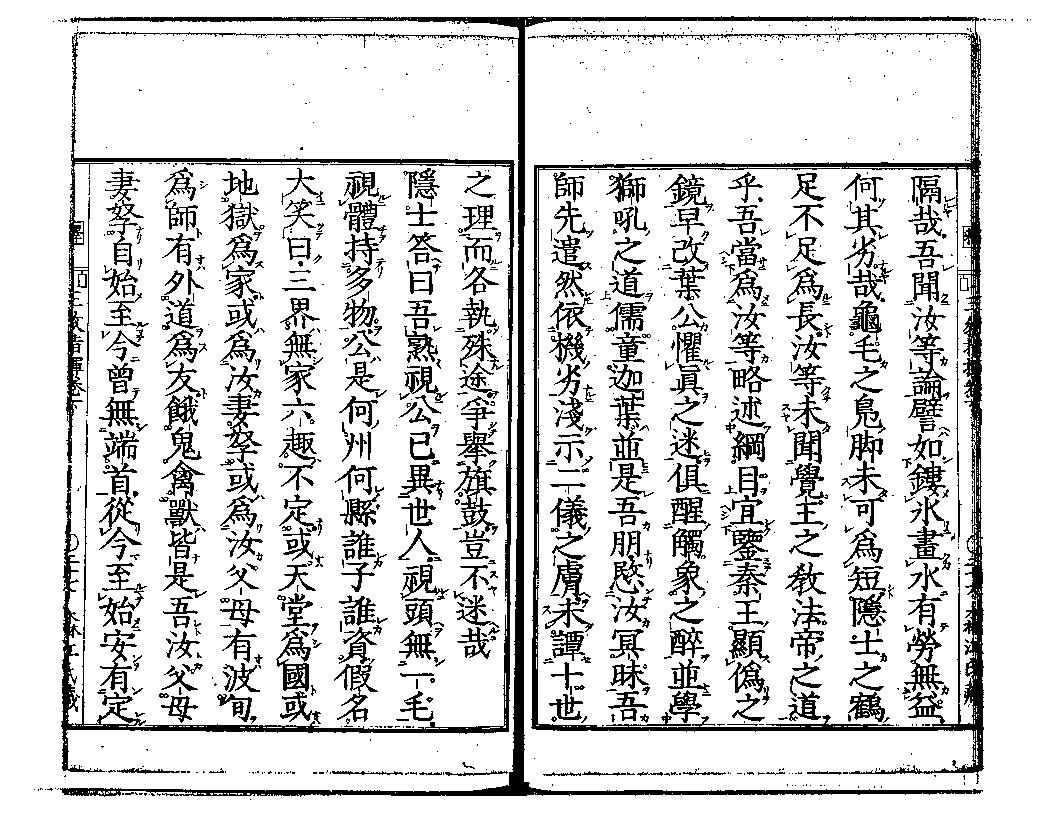 隔哉吾聞汝等論譬如鏤氷畫水有勞無益
何其劣哉龜毛之鳧脚未可爲短隱士之鶴
足不足爲長汝等未聞覺王之敎法帝之道
乎吾當爲汝等略述綱目宜鑒秦王顯僞之
鏡早改葉公懼眞之迷俱醒觸象之醉並學
獅吼之道儒童迦葉並是吾朋愍汝冥昧吾
師先遣然依機劣淺示二儀之膚未譚十世
之理而各執殊途爭擧旗鼓豈不迷哉
隱士答曰吾熟視公已異世人視頭無一毛
視體持多物公是何州何縣誰子誰資假名
大笑曰三界無家六趣不定或天堂爲國或
地獄爲家或爲汝妻孥或爲汝父母有波旬
爲師有外道爲友餓鬼禽獸皆是吾汝父母
妻孥自始至今曾無端首從今至始安有定